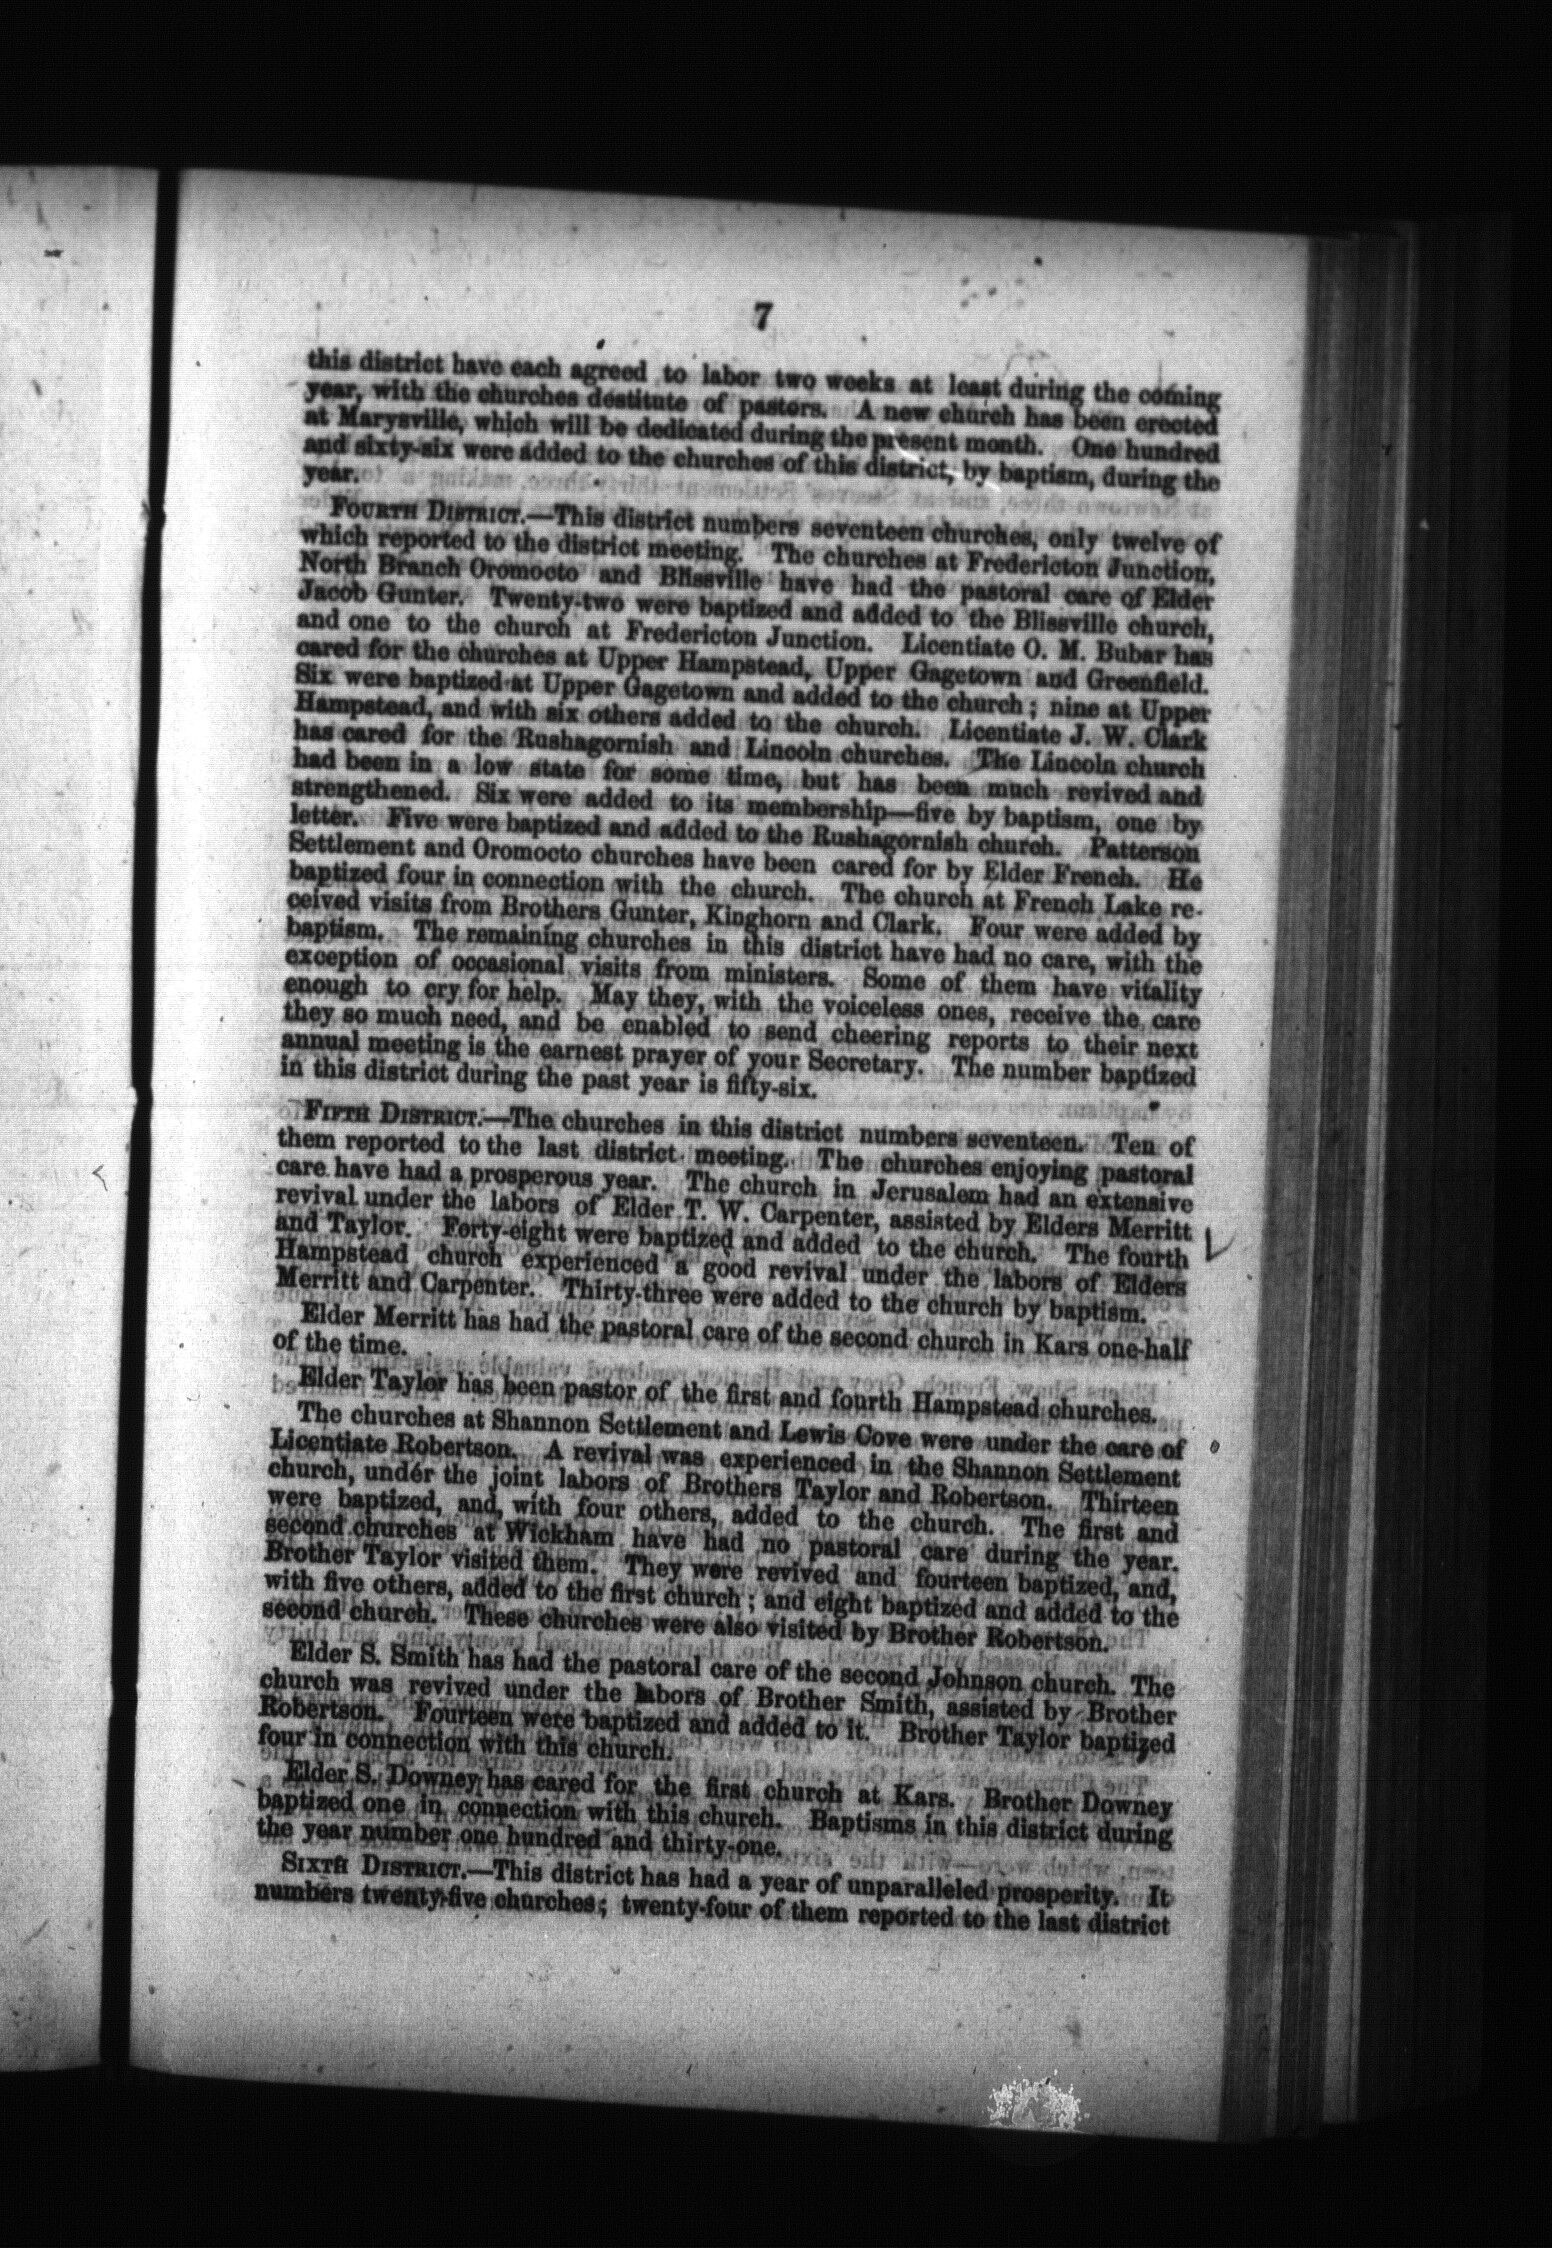 7
this district have each agreed to labor two weeks at least during the coming
year, with the churches destitute of pastors. A new church has been erected
at Marysville, which will be dedicated during the present month. One hundred
and sixty-six were added to the churches of this district, by baptism, during the
year.
FOURTH DISTRICT.—This district numbers seventeen churches, only twelve of
which reported to the district meeting. The churches at Fredericton Junction,
North Branch Oromocto and Blissville have had the pastoral care of Elder
Jacob Gunter. Twenty-two were baptized and added to the Blissville church,
and one to the church at Fredericton Junction. Licentiate O. M. Bubar has
cared for the churches at Upper Hampstead, Upper Gagetown and Greenfield.
Six were baptized at Upper Gagetown and added to the church; nine at Upper
Hampstead, and with six others added to the church. Licentiate J. W. Clark
has cared for the Rushagornish and Lincoln churches. The Lincoln church
had been in a low state for some time, but has been much revived and
strengthened. Six were added to its membership—five by baptism, one by
letter. Five were baptized and added to the Rushagornish church. Patterson
Settlement and Oromocto churches have been cared for by Elder French. He
baptized four in connection with the church. The church at French Lake re-
ceived visits from Brothers Gunter, Kinghorn and Clark. Four were added by
baptism. The remaining churches in this district have had no care, with the
exception of occasional visits from ministers. Some of them have vitality
enough to cry for help. May they, with the voiceless ones, receive the care
they so much need, and be enabled to send cheering reports to their next
annual meeting is the earnest prayer of your Secretary. The number baptized
in this district during the past year is fifty-six.
FIFTH DISTRICT.—The churches in this district numbers seventeen. Ten of
them reported to the last district meeting. The churches enjoying pastoral
care have had a prosperous year. The church in Jerusalem had an extensive
revival under the labors of Elder T. W. Carpenter, assisted by Elders Merritt
and Taylor. Forty-eight were baptized and added to the church. The fourth
Hampstead church experienced a good revival under the labors of Elders
Merritt and Carpenter. Thirty-three were added to the church by baptism.
Elder Merritt has had the pastoral care of the second church in Kars one-half
of the time.
Elder Taylor has been pastor of the first and fourth Hampstead churches.
The churches at Shannon Settlement and Lewis Cove were under the care of
Licentiate Robertson. A revival was experienced in the Shannon Settlement
church, under the joint labors of Brothers Taylor and Robertson. Thirteen
were baptized, and, with four others, added to the church. The first and
second churches at Wickham have had no pastoral care during the year.
Brother Taylor visited them. They were revived and fourteen baptized, and,
with five others, added to the first church; and eight baptized and added to the
second church. These churches were also visited by Brother Robertson.
Elder S. Smith has had the pastoral care of the second Johnson church. The
church was revived under the labors of Brother Smith, assisted by Brother
Robertson. Fourteen were baptized and added to it. Brother Taylor baptized
four in connection with this church.
Elder S. Downey has cared for the first church at Kars. Brother Downey
baptized one in connection with this church. Baptisms in this district during
the year number one hundred and thirty-one.
SIXTH DISTRICT.—This district has had a year of unparalleled prosperity. It
numbers twenty-five churches; twenty-four of them reported to the last district